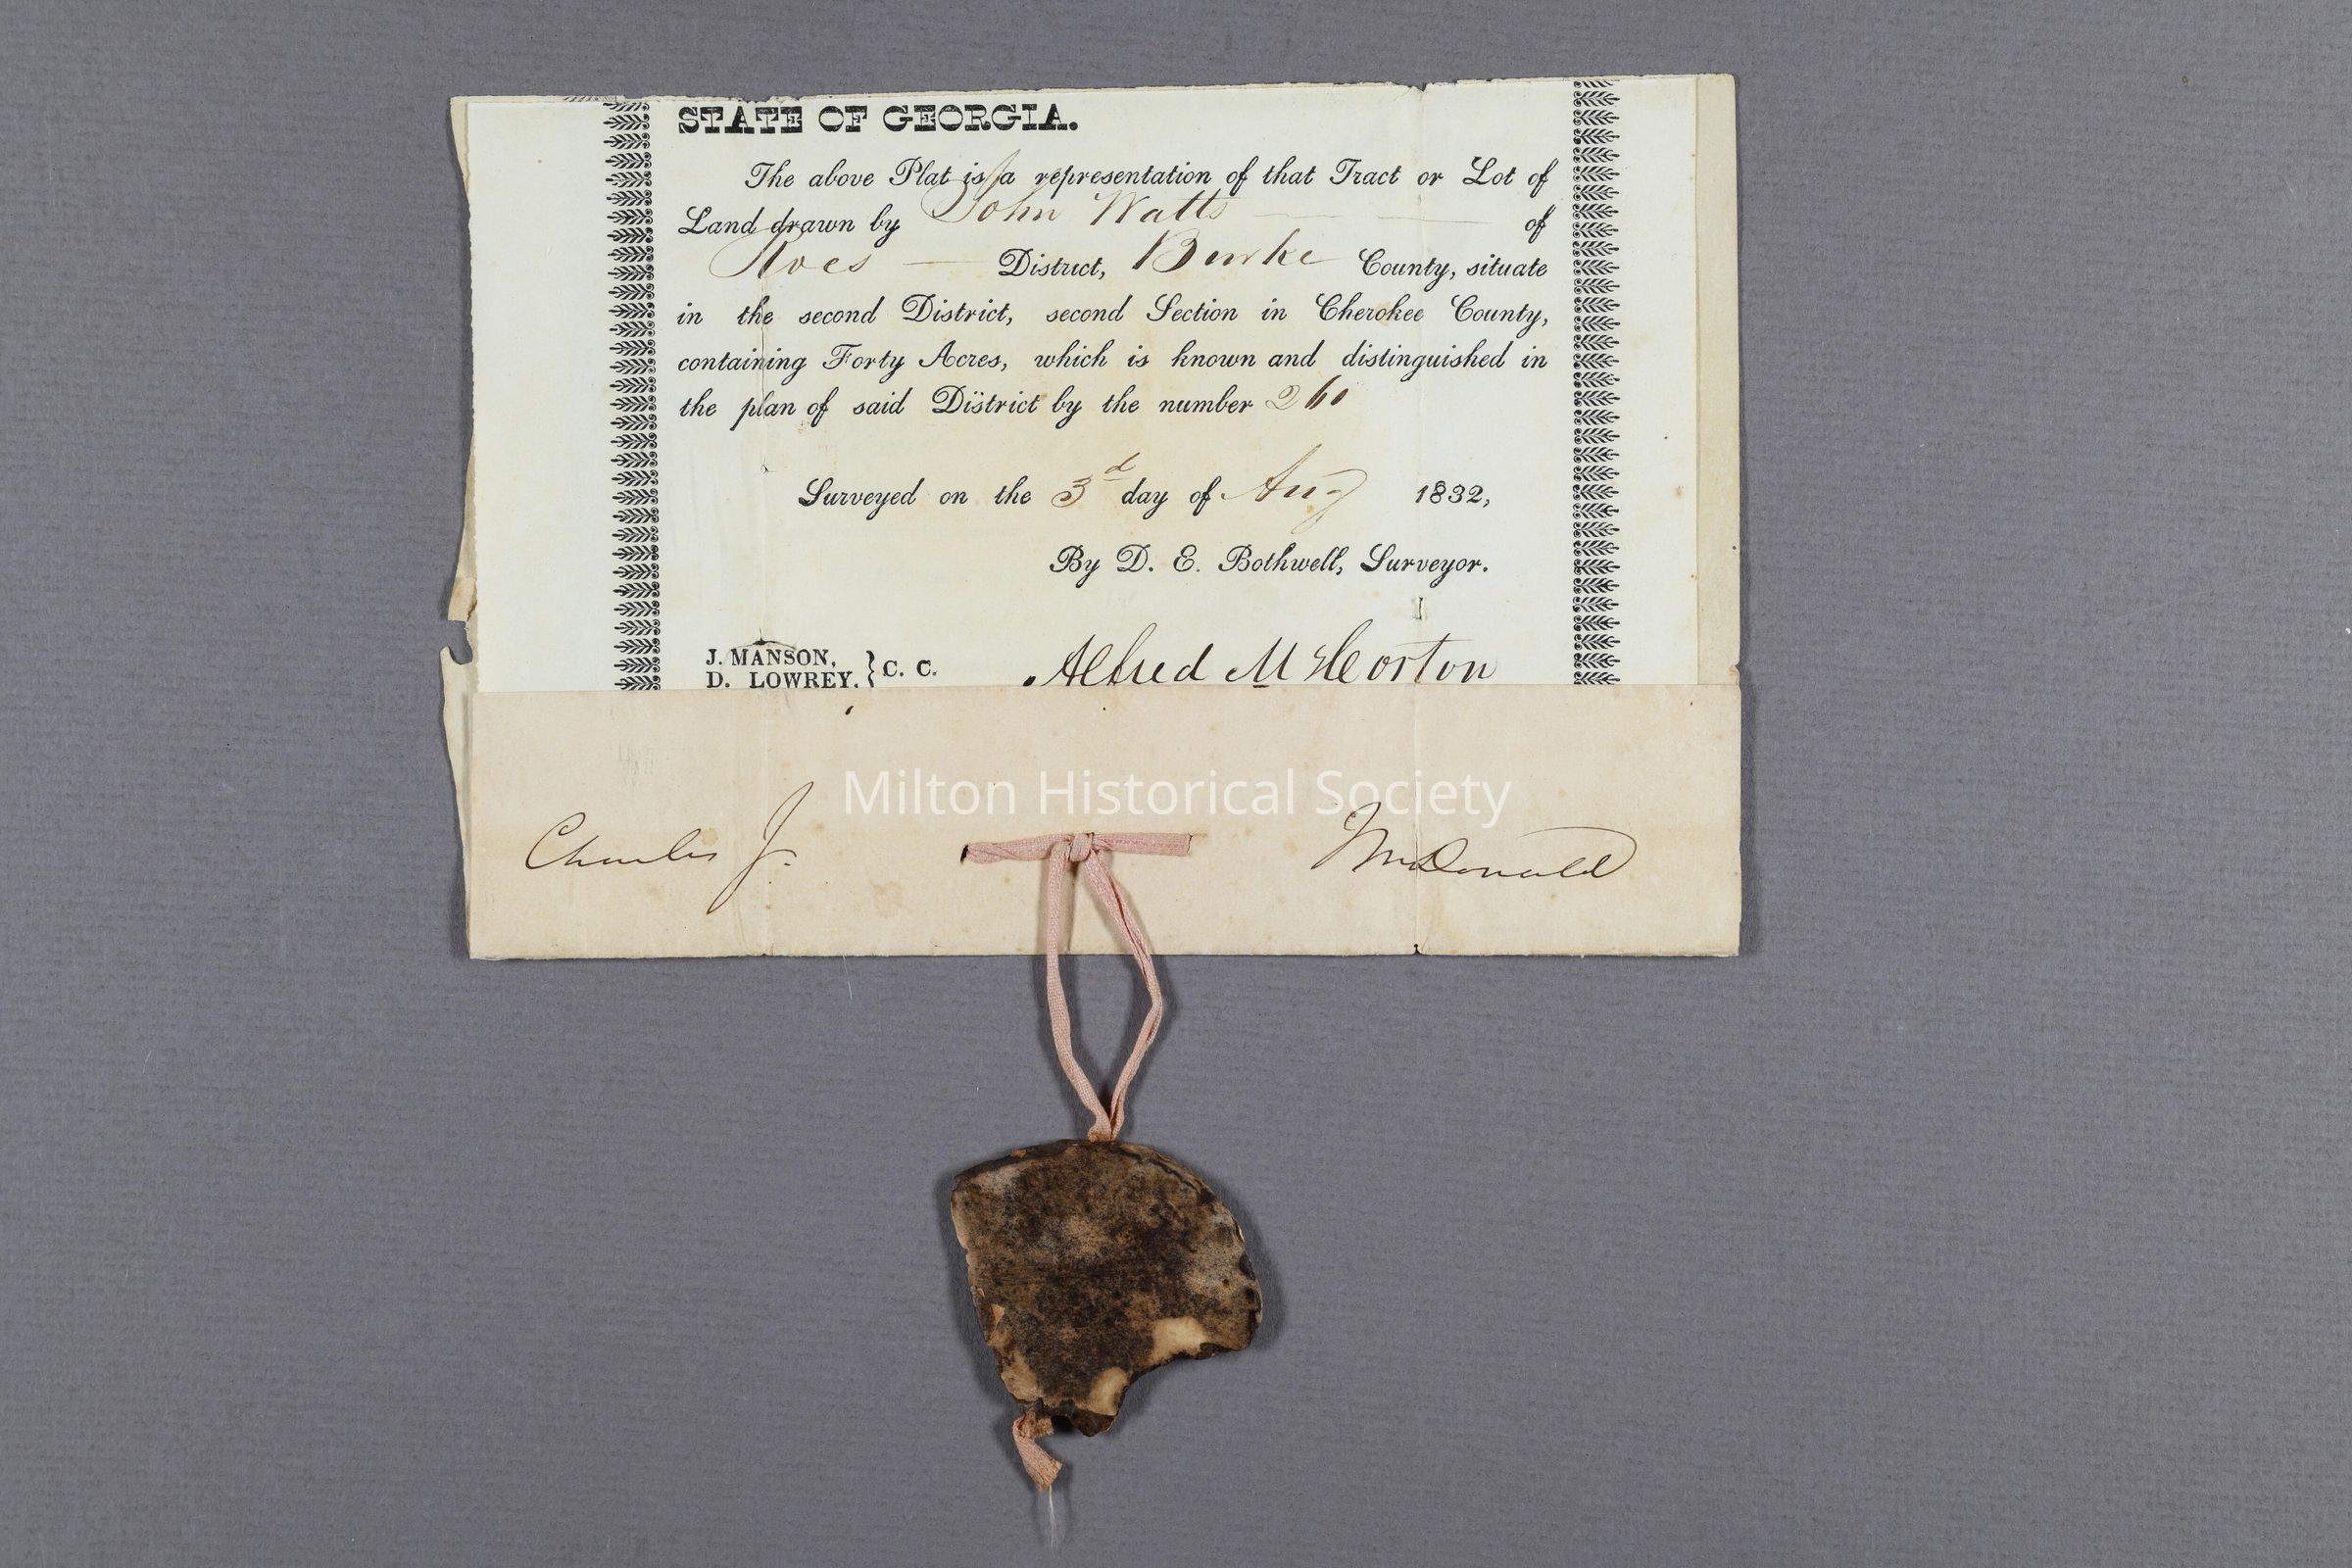 STATE OF GEORGIA.
The above Plat is a representation of that Tract or Lot of
Land drawn by John Watts of
Roes District, Burke County, situate
in the second District, second Section in Cherokee County,
containing Forty Acres, which is known and distinguished in
the plan of said District by the number 260
Surveyed on the 3d day of Aug 1832,
By D. E. Bothwell, Surveyor.
J. MANSON,
D. LOWREY. } C. C.
Alfred M Horton
Milton Historical Society
Charles J. McDonald